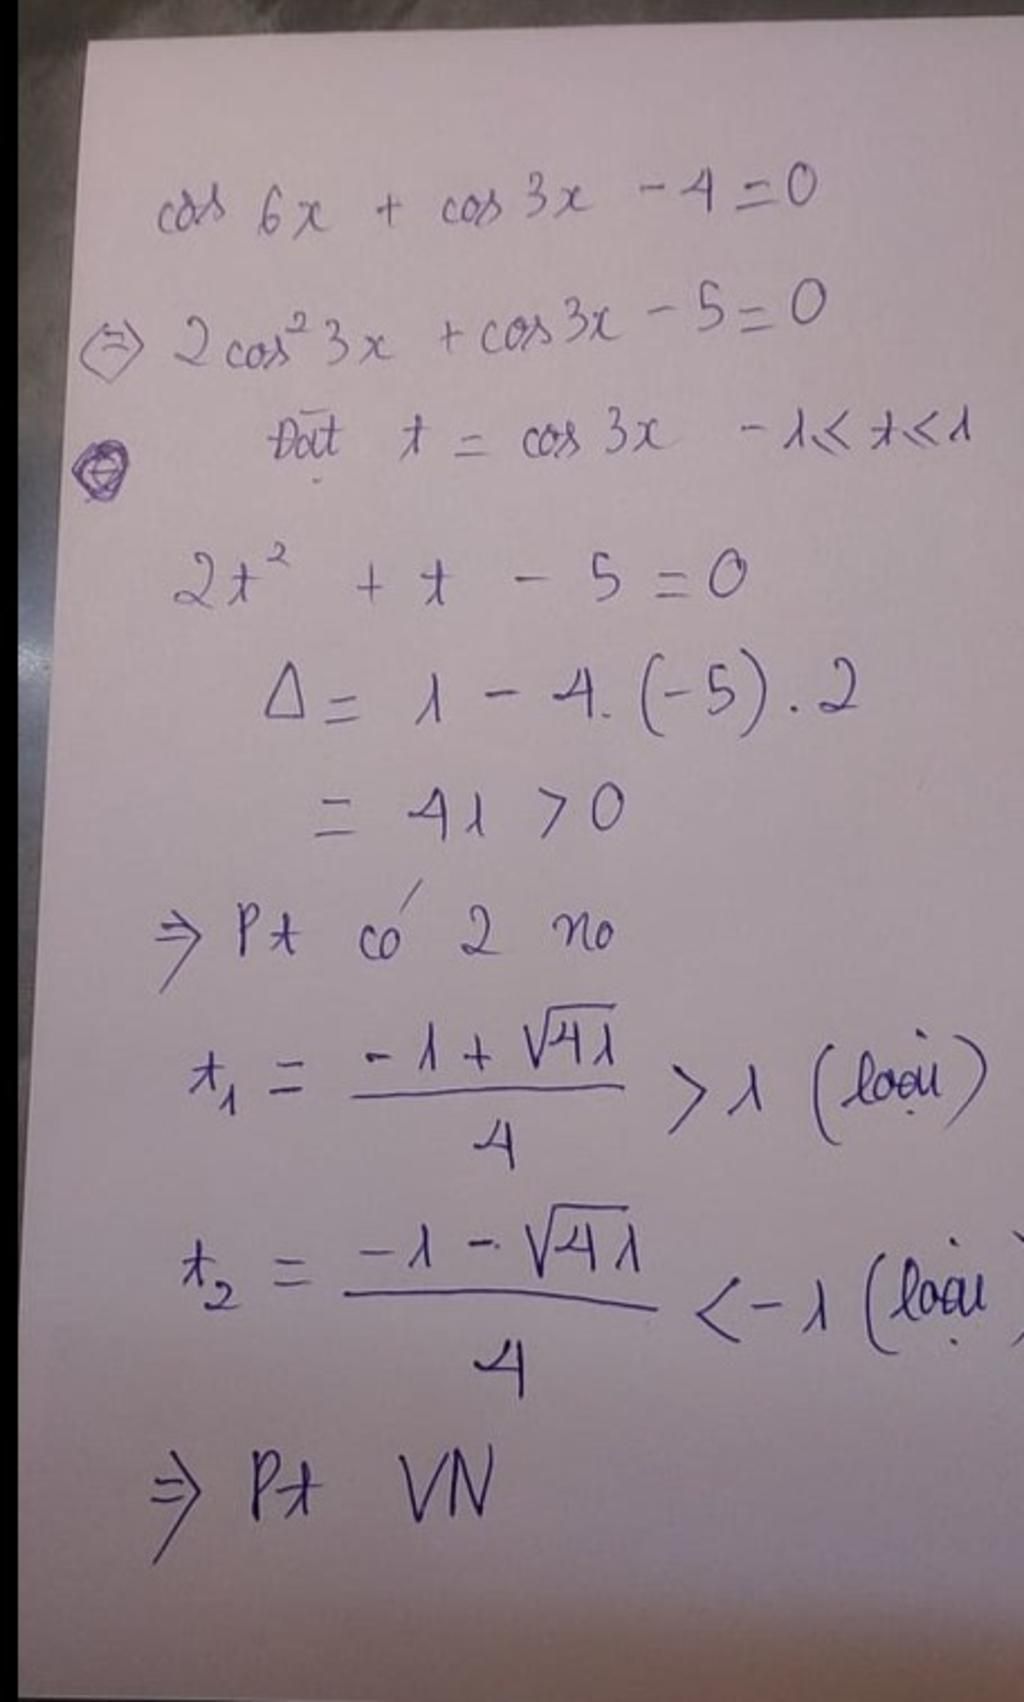 cos 6x + cos 3x - 4 = 0
⇔ 2cos² 3x + cos 3x - 5 = 0
Đặt t = cos 3x -1 < t < 1
2t² + t - 5 = 0
Δ = 1 - 4.(-5).2
= 41 > 0
⇒ Pt có 2 no
t₁ = (-1 + √41)/4 > 1 (loại)
t₂ = (-1 - √41)/4 < -1 (loại)
⇒ Pt VN